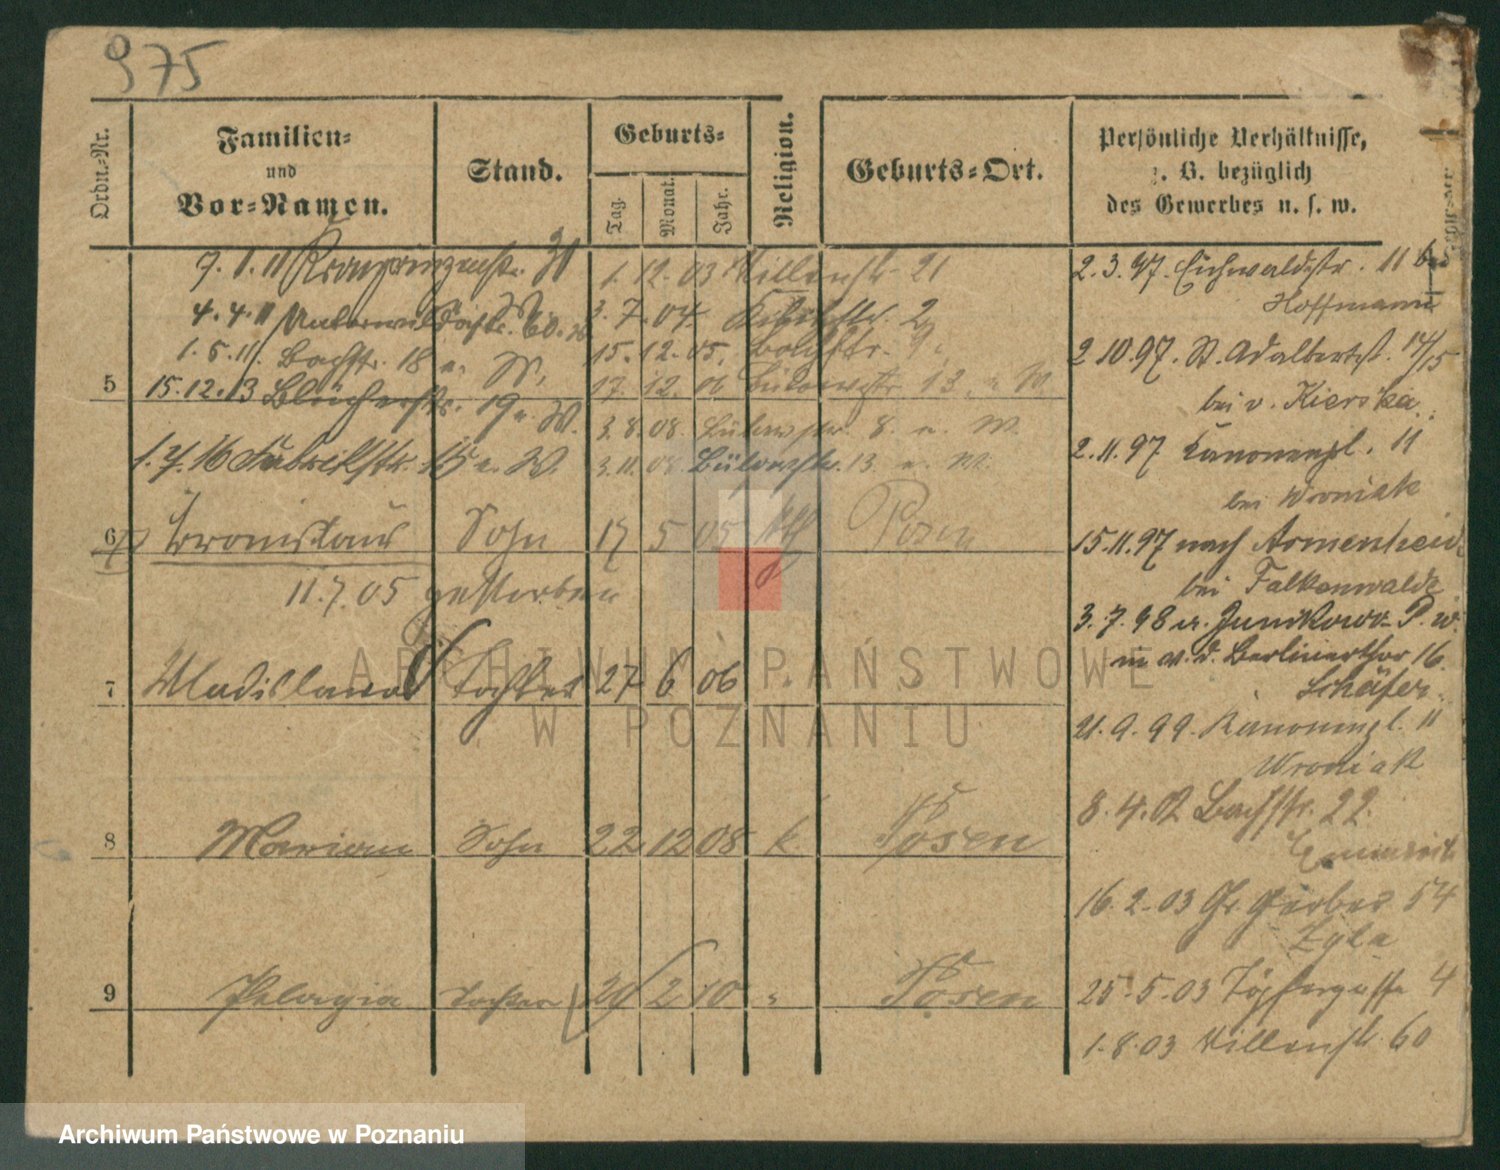 975
Ordn.-Nr.
Familien-
und
Vor-Namen.
Stand.
Geburts-
Tag.
Monat.
Jahr.
Religion.
Geburts-Ort.
Persönliche Verhältnisse,
z. B. bezüglich
des Gewerbes u. s. w.
7.1.11 Kronprinzenstr. 31
4.4.11
1.5.11. Bachstr. 18 u. W.
5 15.12.13 Blücherstr. 19 u. W.
1.4.16 Fabrikstr. 15 u. W.
1.12.03 Villenstr. 21
3.7.04. 2
15.12.05.
17.12.06 Bülowstr. 13. u. W.
3.8.08. Bülowstr. 8. u. W.
3.11.08 Bülowstr. 13 u. W.
6 Bronislaus Sohn 17 5 05 Posen
11.7.05 gestorben
7 Wladislawa Tochter 27 6 06
8 Marian Sohn 22 12 08 k. Posen
9 Pelagia Tochter 2 10 " Posen
2.3.97. Eichwaldstr. 11 bei
Hoffmann
2.10.97. St. Adalbertst. 14/15
bei v. Kierska.
2.11.97 Kanonenpl. 11
bei Wroniak
15.11.97 nach Armenheide
bei Falkenwalde
3.7.98 a. Junikowo P. w.
v. d. Berlinerthor 16.
Schäfer.
21.9.99. Kanonenpl. 11
Wroniak
8.4.02 Bachstr. 22.
16.2.03 Gr. Gerber 54
Zyla
25.5.03 Töpfergasse 4
1.8.03 Villenstr. 60
ARCHIWUM PAŃSTWOWE
W POZNANIU
Archiwum Państwowe w Poznaniu